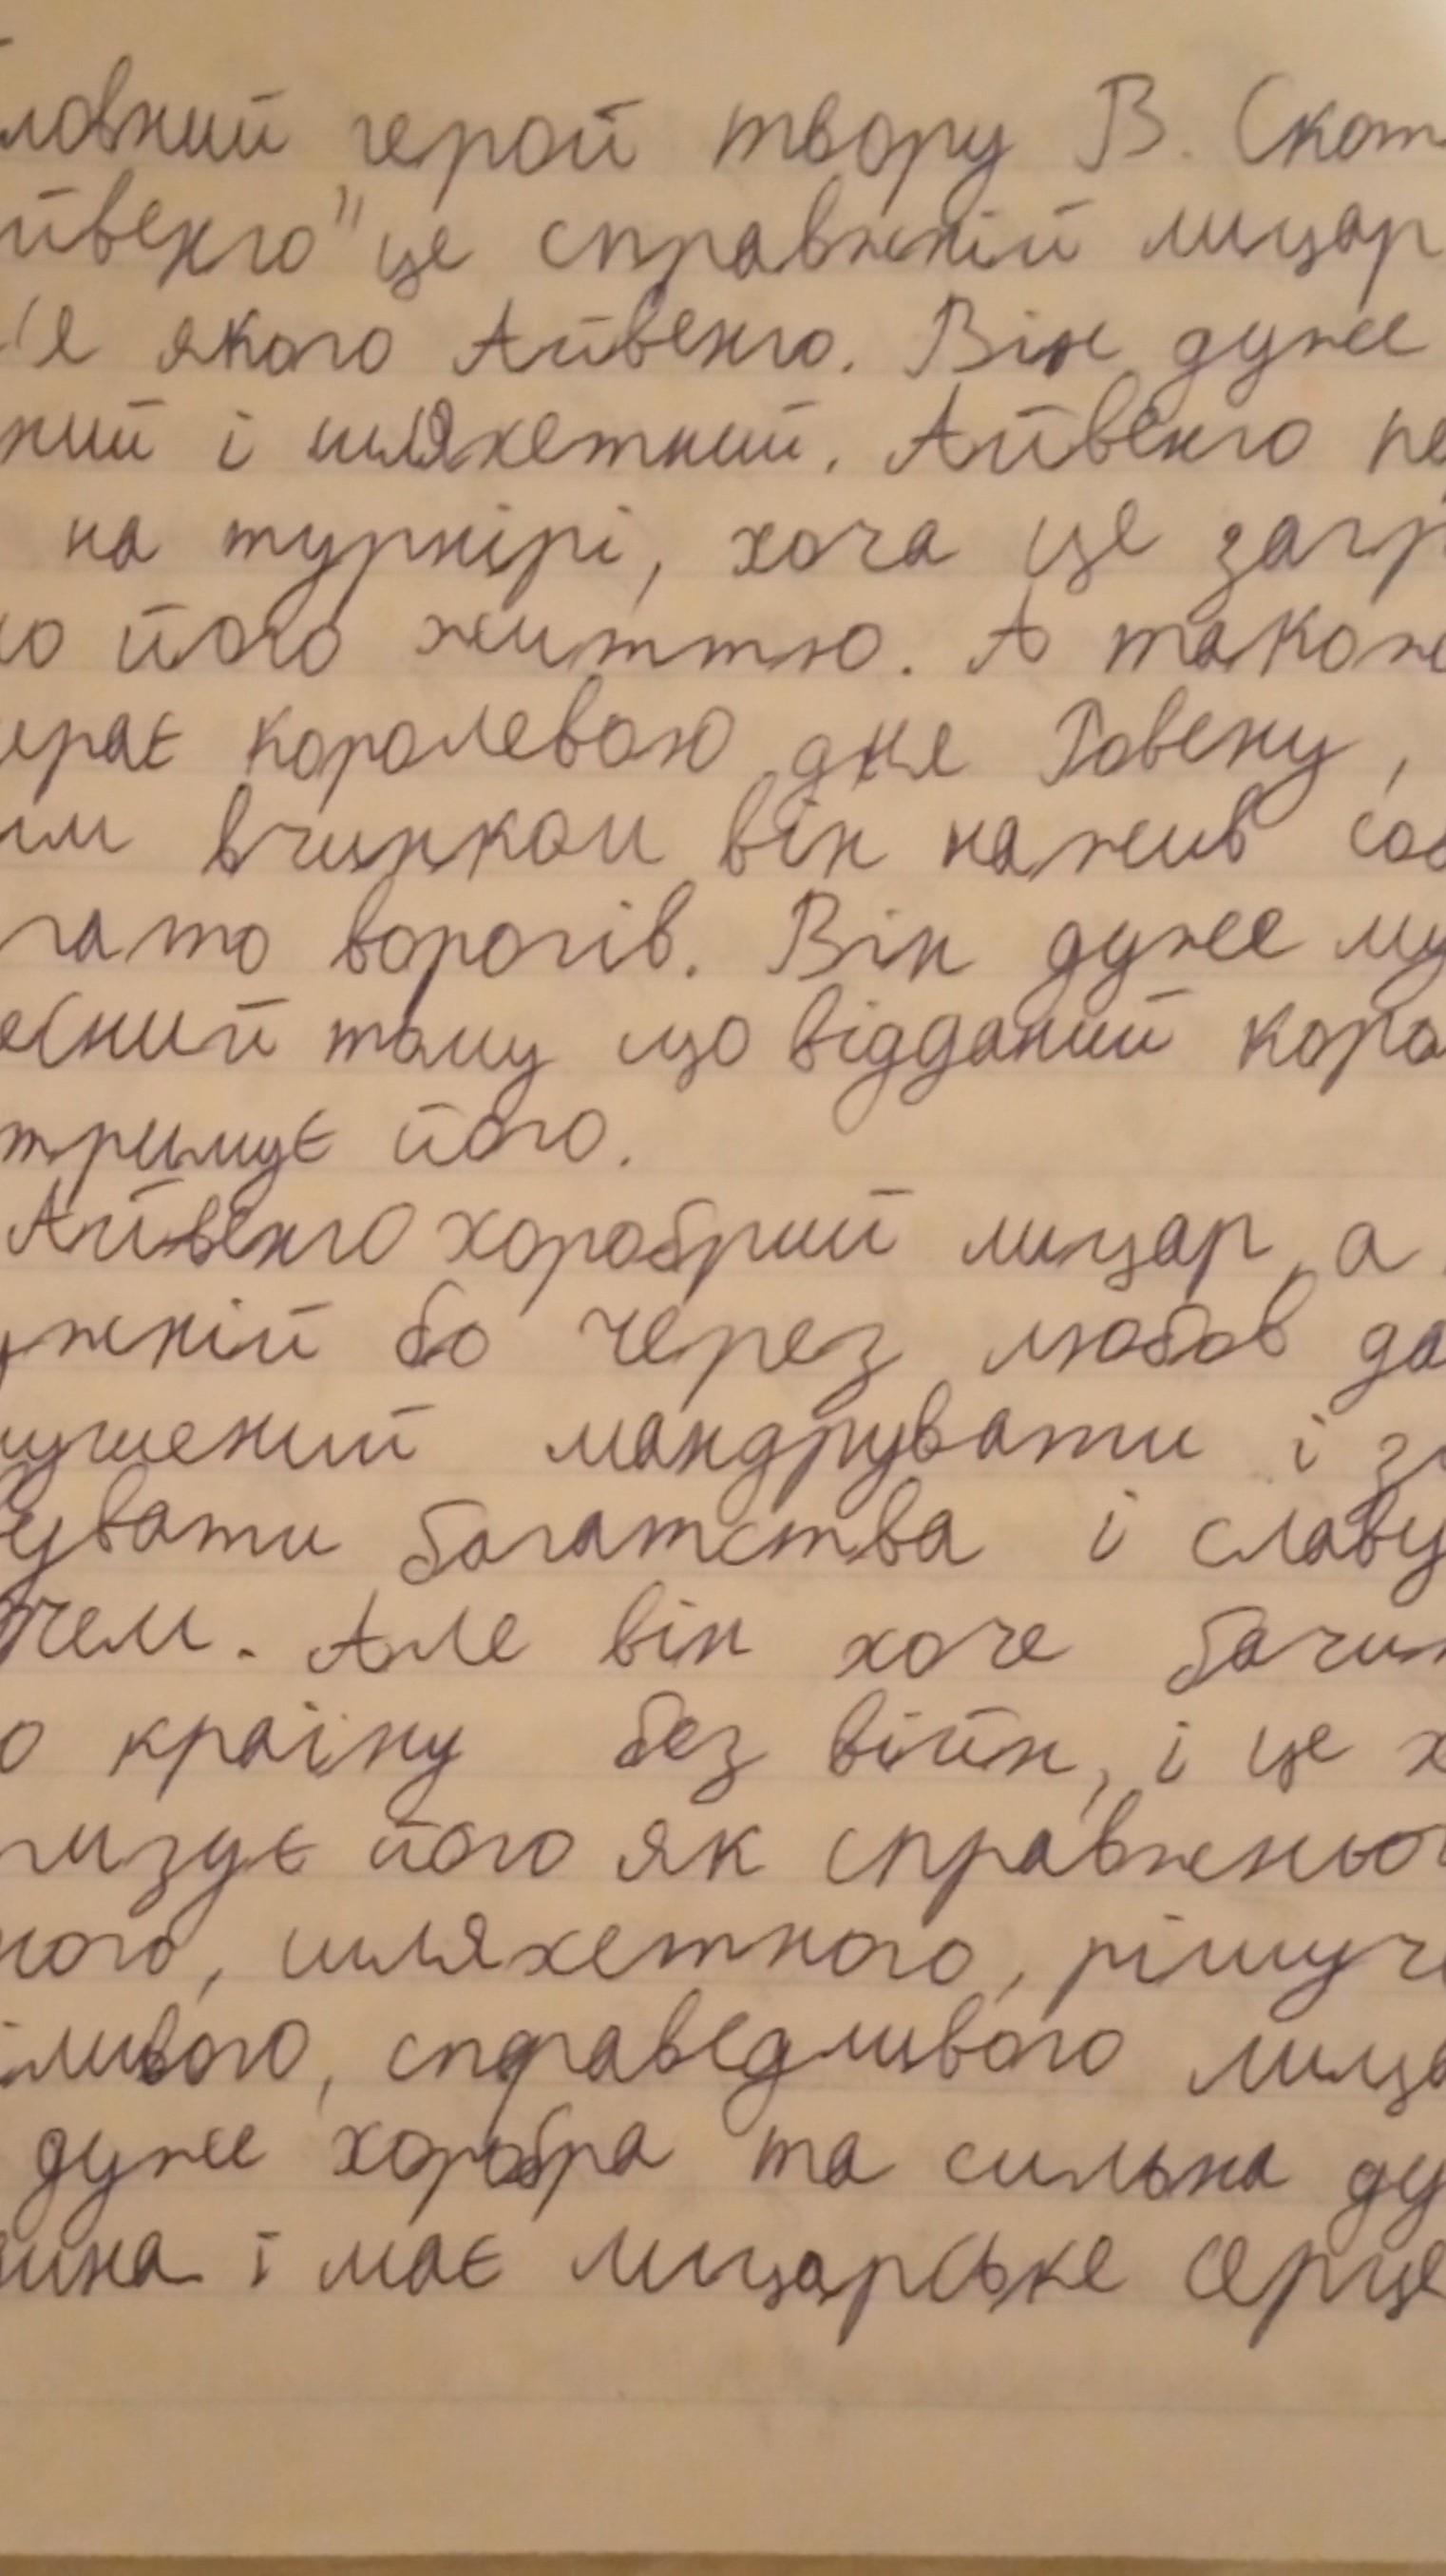 ловний герой твору В. Скот
йвенго" це справжній лицар
'я якого Айвенго. Він дуже
ний і шляхетний. Айвенго пе
на турнірі, хоча це загр
ло його життю. А також
ирає королевою дня Ровену,
им вчинком він нажив соб
гато ворогів. Він дуже му
есний тому що відданий коро
тримує його.
Айвенго хоробрий лицар, а
ужній бо через любов до
мушений мандрувати і зд
увати богатства і славу
чем. Але він хоче бачит
ю країну без війн, і це х
ризує його як справжньог
ного, шляхетного, рішуч
ливого, справедливого лица
дуже хоробра та сильна ду
ина і має лицарське серце